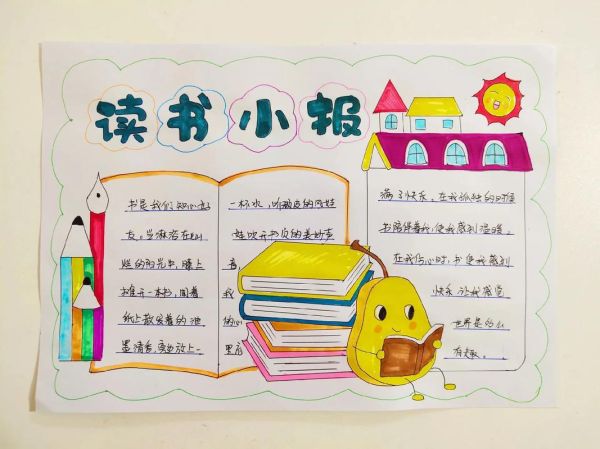 读书小报
书是我们知心朋
友。当沐浴在灿
烂的阳光中,膝上
摊开一本书,闻着
纸上散发着的
墨清香,旁边放上一
一杯水,听顽皮的风娃
娃吹开书页的美妙声
音
我
的心
里充
满了快乐。在我孤独的时候
书陪伴着我,使我感到温暖。
在我伤心时,书使我感到
快乐,让我感觉
世界是如此
有趣。